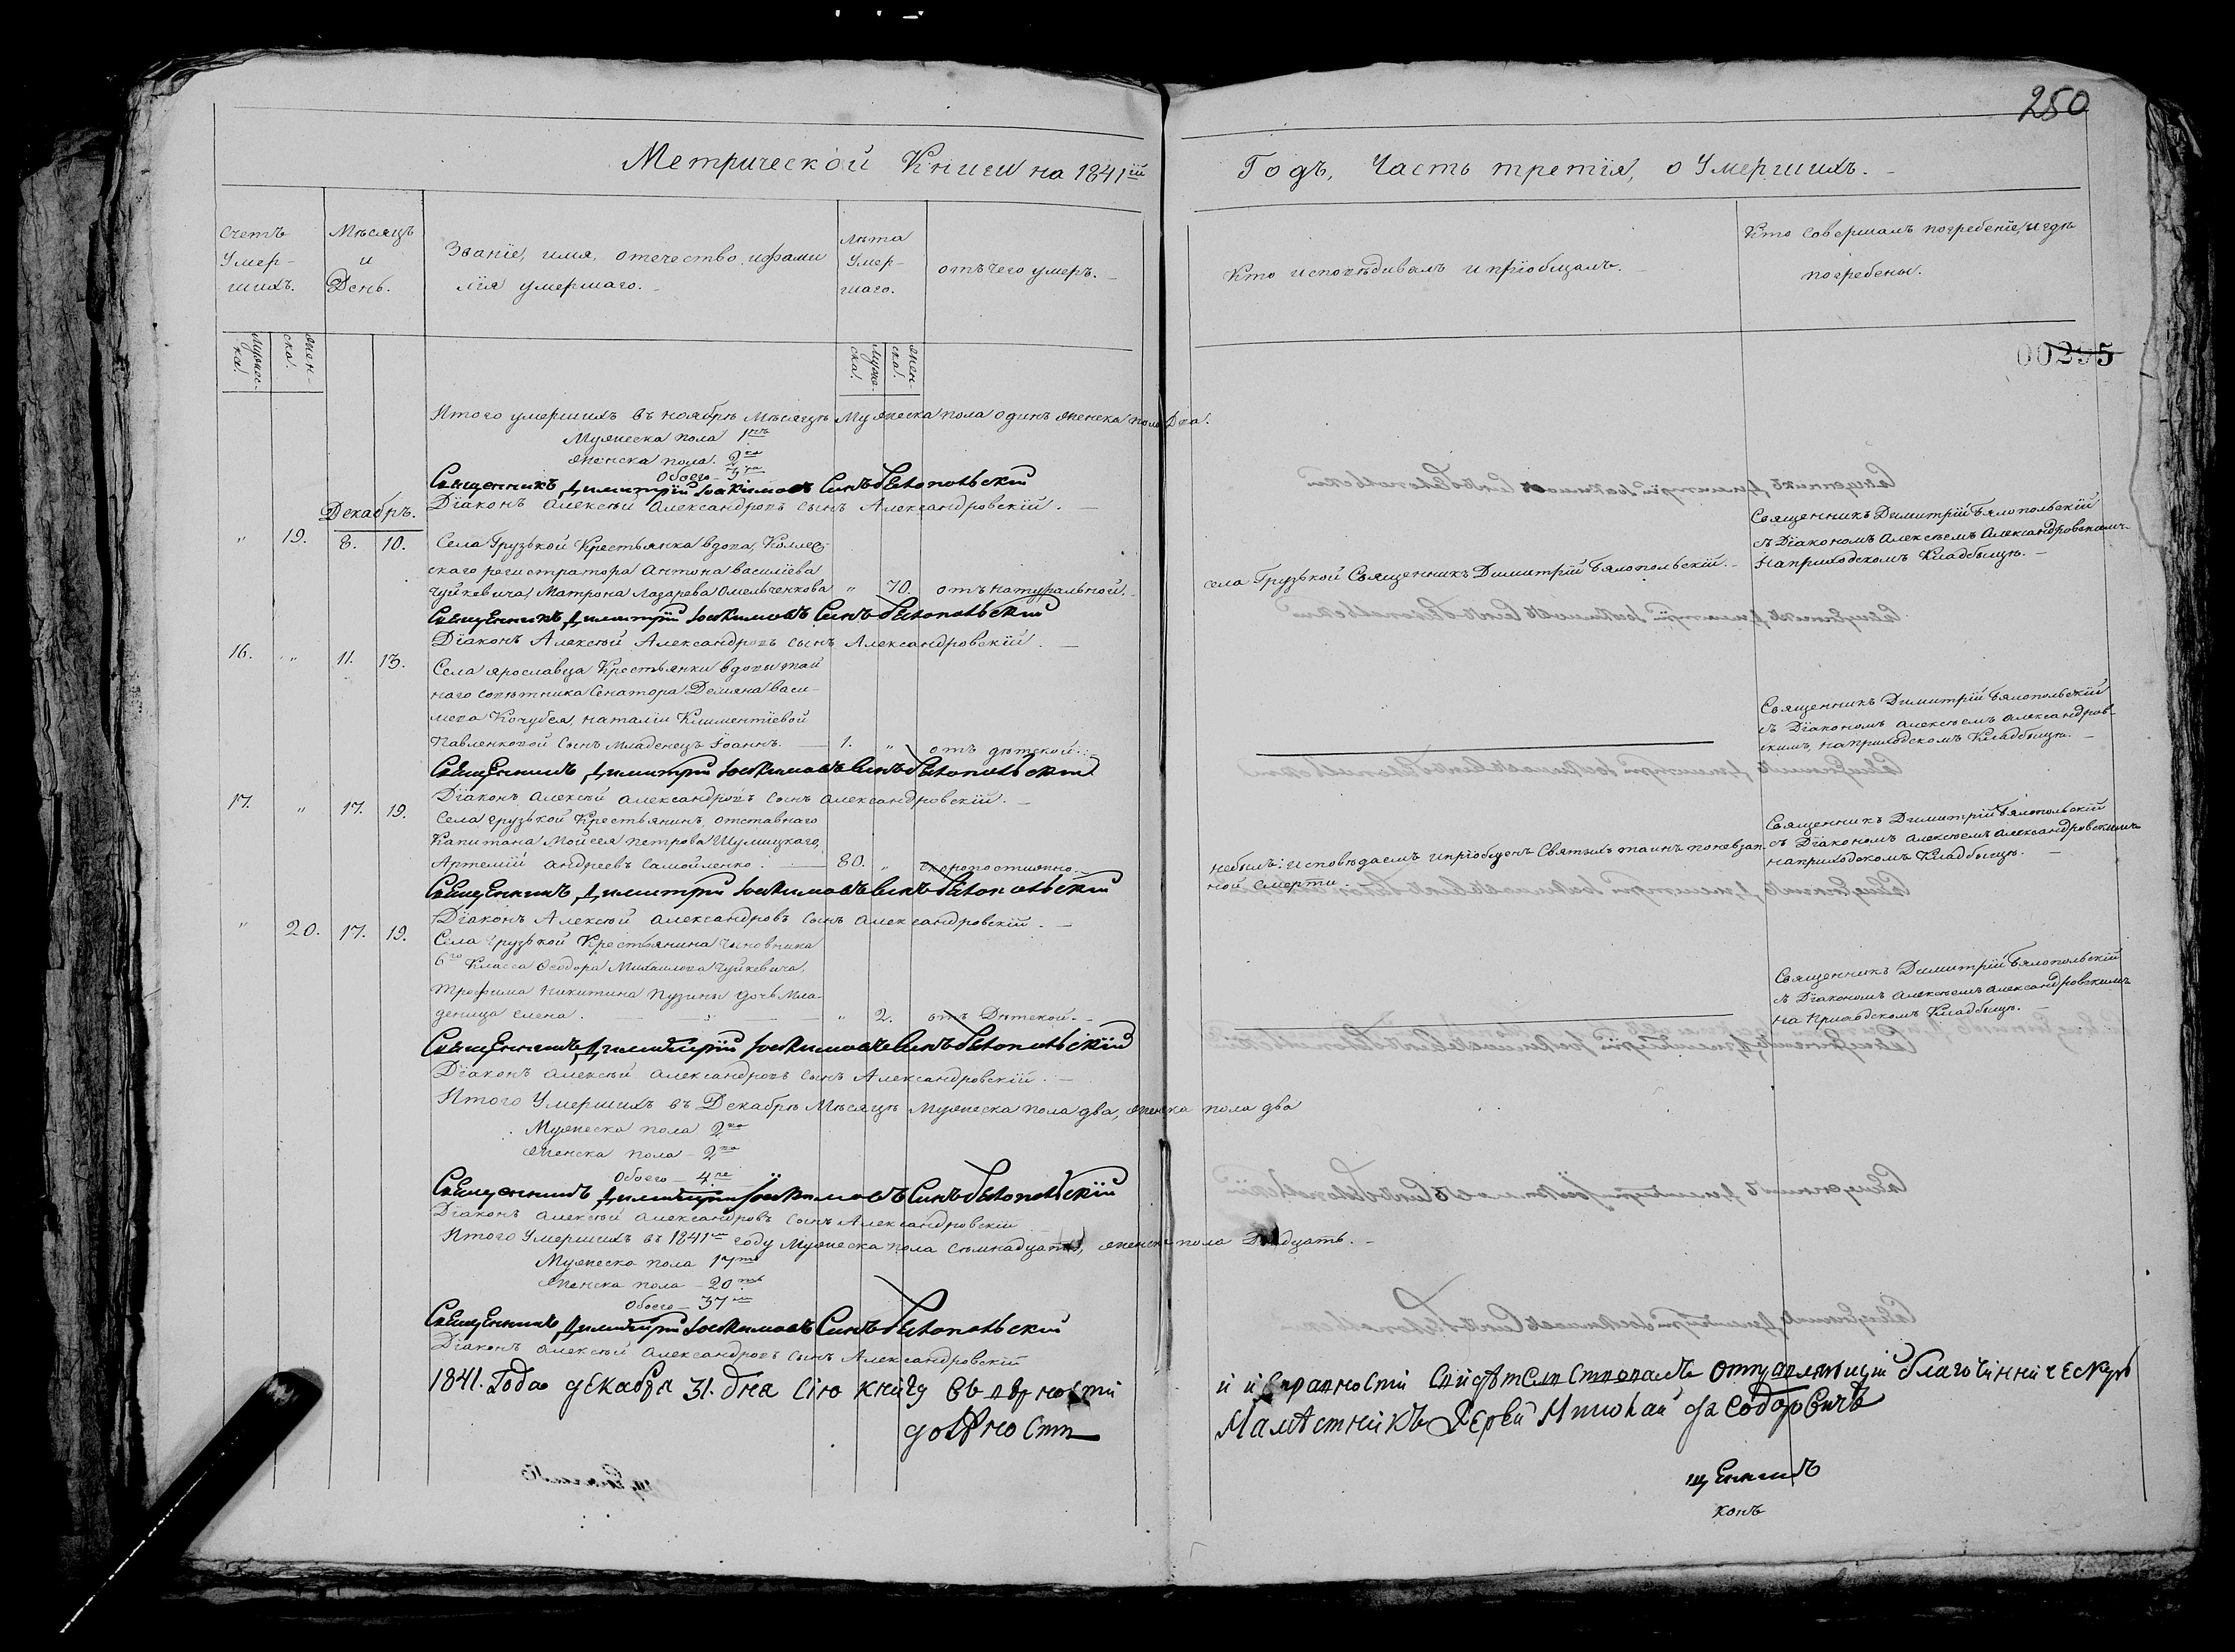 250
Метрической Книги на 1841ій Годъ, Часть третія, о Умершихъ.
Счетъ Умер-шихъ.
Мужес-ка.
Жен-ска.
Мѣсяцъ и День.
Званіе, имя, отечество, ифами
лія умершаго.
Лѣта Умер-шаго.
Мужес-ка.
Жен-ска.
отъ чего умеръ.
Кто исповѣдивалъ и пріобщалъ.
Кто совершалъ погребеніе, и гдѣ
погребены.
00295
Итого умершихъ въ ноябрѣ Мѣсяцѣ Мужеска пола одинъ женска пола Два.
Мужеска пола 1нъ
женска пола. 2ва
Обоего 3ри
Священникъ Димитрій Іоакимовъ Синъ Бялопольскій
Діаконъ Алексѣй Александровъ сынъ Александровскій.
Декабрь.
" 19. 8. 10. Села Грузькой Крестьянка вдова, Коллеж-
скаго регистратора Антона василіева
Чуйкевича, Матрона Лазарева Омельченкова " 70. отъ натуральной.
села Грузькой Священникъ Димитрій Бялопольскій.
Священникъ Димитрій Бялопольскій
съ Діакономъ Алексѣемъ Александровскимъ
На приходскомъ Кладбыщѣ.
Священникъ Димитрій Іоакимовъ Синъ Бялопольскій
Діаконъ Алексѣй Александровъ сынъ Александровскій.
16. " 11. 13. Села ярославца Крестьянки вдовы тай
наго совѣтника Сенатора Демяна васи-
лева Кочубея, наталіи Климентіевой
Павленковой сынъ Младенецъ Іоаннъ. 1. " отъ дѣтской.
Священникъ Димитрій Бялопольскій
съ Діакономъ Алексѣемъ Александров-
скимъ, на приходскомъ Кладбыщѣ.
Священникъ Димитрій Іоакимовъ Синъ Бялопольскій
Діаконъ Алексѣй Александровъ сынъ Александровскій.
17. " 17. 19. Села грузькой Крестьянинъ, отставнаго
Капитана Мойсея петрова Шумицкаго,
Артемій андреевъ Самойленко 80. " скоропостижно.
небылъ: исповѣдаемъ ипріобщенъ Святыхъ таинъ поневзап-
ной смерти.
Священникъ Димитрій Бялопольскій
съ Діакономъ Алексѣемъ Александровскимъ
на приходскомъ Кладбыщѣ.
Священникъ Димитрій Іоакимовъ Синъ Бялопольскій
Діаконъ Алексѣй Александровъ сынъ Александровскій.
" 20. 17. 19. Села грузькой Крестьянина Чиновника
6го Класса Ѳеодора Михаилова Чуйкевича,
Трофима Никитина Пузины дочь Мла-
деница Елена. " 2. отъ Дѣтской.
Священникъ Димитрій Бялопольскій
съ Діакономъ Алексѣемъ Александровскимъ
на Приходскомъ Кладбыщѣ.
Священникъ Димитрій Іоакимовъ Синъ Бялопольскій
Діаконъ Алексѣй Александровъ сынъ Александровскій.
Итого Умершихъ въ Декабрѣ Мѣсяцѣ Мужеска пола два, женска пола два
Мужеска пола 2ва
женска пола 2ва
Обоего 4ре
Священникъ Димитрій Іоакимовъ Синъ Бялопольскій
Діаконъ Алексѣй Александровъ сынъ Александровскій
Итого Умершихъ въ 1841мъ году Мужеска пола съмнадцать, женска пола Двадцать.
Мужеска пола 17ть
женска пола 20ть
Обоего 37мь
Священникъ Димитрій Іоакимовъ Синъ Бялопольскій
Діаконъ Алексѣй Александровъ сынъ Александровскій
1841. Года декабря 31. дня сію книгу въ вѣрности и исправности свидѣтельствовалъ отправляющій благочинническую
должность Намѣстникъ Іерей Николай Ѳеодоровичъ
щенникъ
конъ